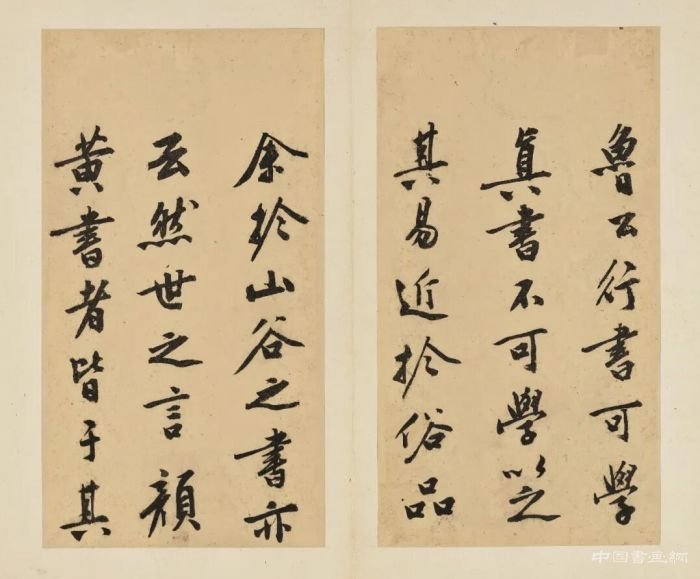 魯公行書可學
真書不可學以
其易近於俗品
余於山谷之書亦
云然世之言顏
黃書者皆于其
中国書画網